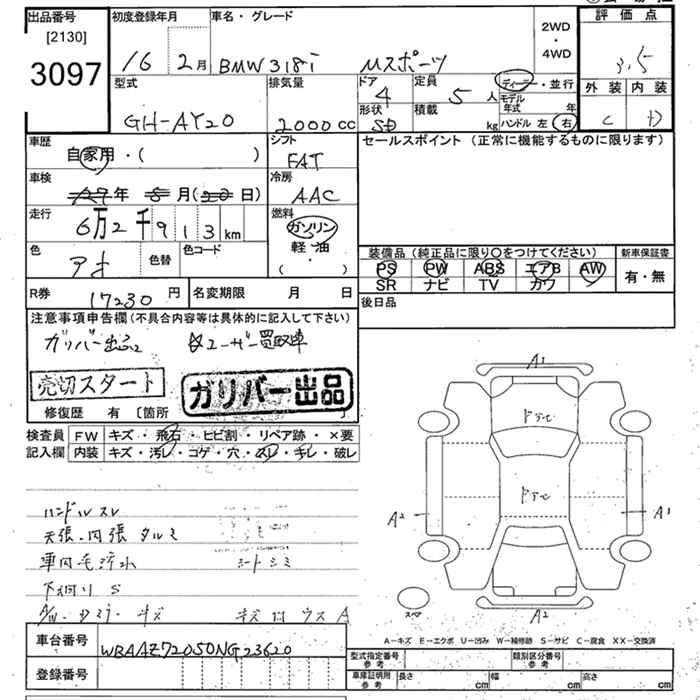 出品番号
[2130]
3097
初度登録年月
16 2月
車名・グレード
BMW 318i Mスポーツ
2WD
・
4WD
評価点
3.5
外装 内装
C D
型式
GH-AY20
排気量
2000cc
ドア
4
定員
5人
形状
SD
積載
kg
ディーラー・並行
モデル年式 年
ハンドル 左 右
車歴
自家用・( )
シフト
FAT
セールスポイント (正常に機能するものに限ります)
車検
年 月( 日)
冷房
AAC
走行
6万2千913km
燃料
ガソリン
軽・油
( )
色
アオ
色替
色コード
装備品(純正品に限り○をつけてください)
PS PW ABS エアB AW
SR ナビ TV カワ
新車保証書
有・無
R券
17230円
名変期限 月 日
後日品
注意事項申告欄(不具合内容等は具体的に記入して下さい)
ガリバー出品 ユーザー買取車
売切スタート
ガリバー出品
修復歴 有 〔箇所 〕
検査員
記入欄
FW キズ・飛石・ヒビ割・リペア跡・×要
内装 キズ・汚レ・コゲ・穴・スレ・キレ・破レ
ハンドルスレ
天張・内張タルミ
車内毛汚水 シートシミ
下廻りS
キズ キズ ウスA
A1
A2
A1
A2
スペア
A-キズ E-エクボ U-凹み W-補修跡 S-サビ C-腐食 XX-交換済
車台番号
WBAAZ72050NG23620
登録番号
型式指定番号
参考
類別区分番号
参考
車庫証明用
参考
長さ cm
幅 cm
高さ cm